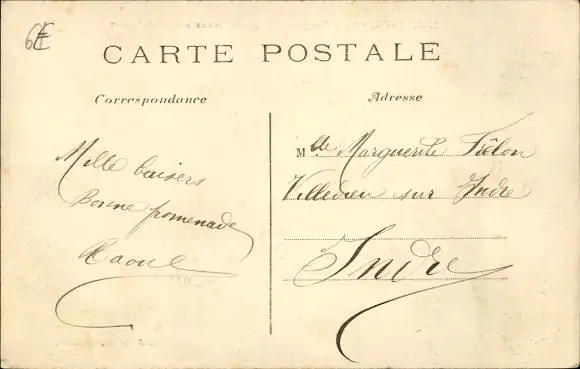 6€
CARTE POSTALE
Correspondance
Adresse
Mille baisers
Bonne promenade
Raoul
Mlle Marguerite Frélon
Villedieu sur Indre
Indre